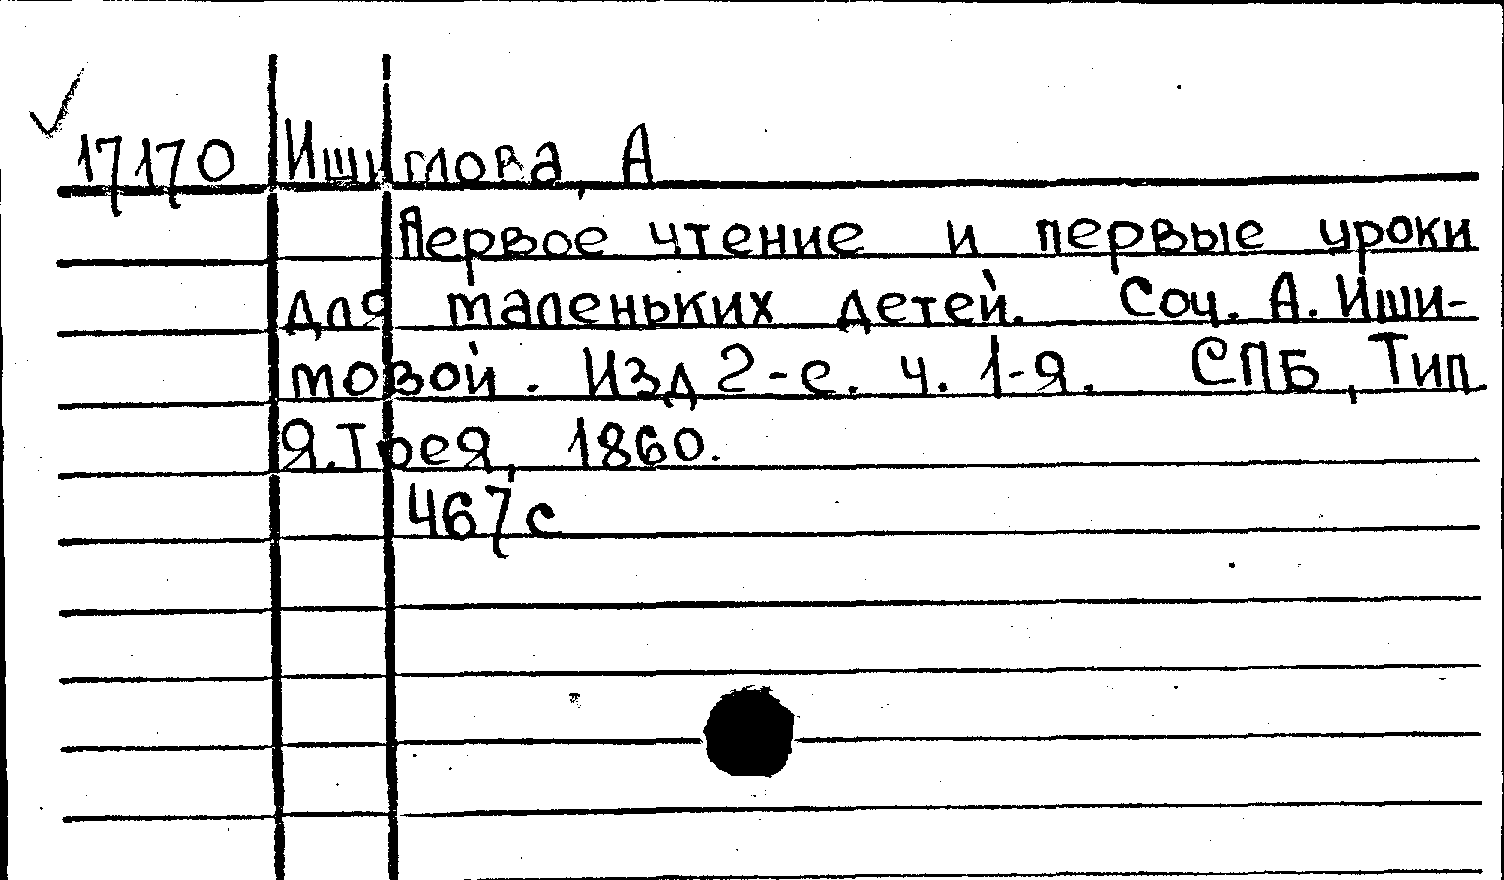 17170 Ишимова, А
Первое чтение и первые уроки
для маленьких детей. Соч. А. Иши-
мовой. Изд 2-е. ч. 1-я. СПБ, Тип
Я. Трея, 1860.
467 с